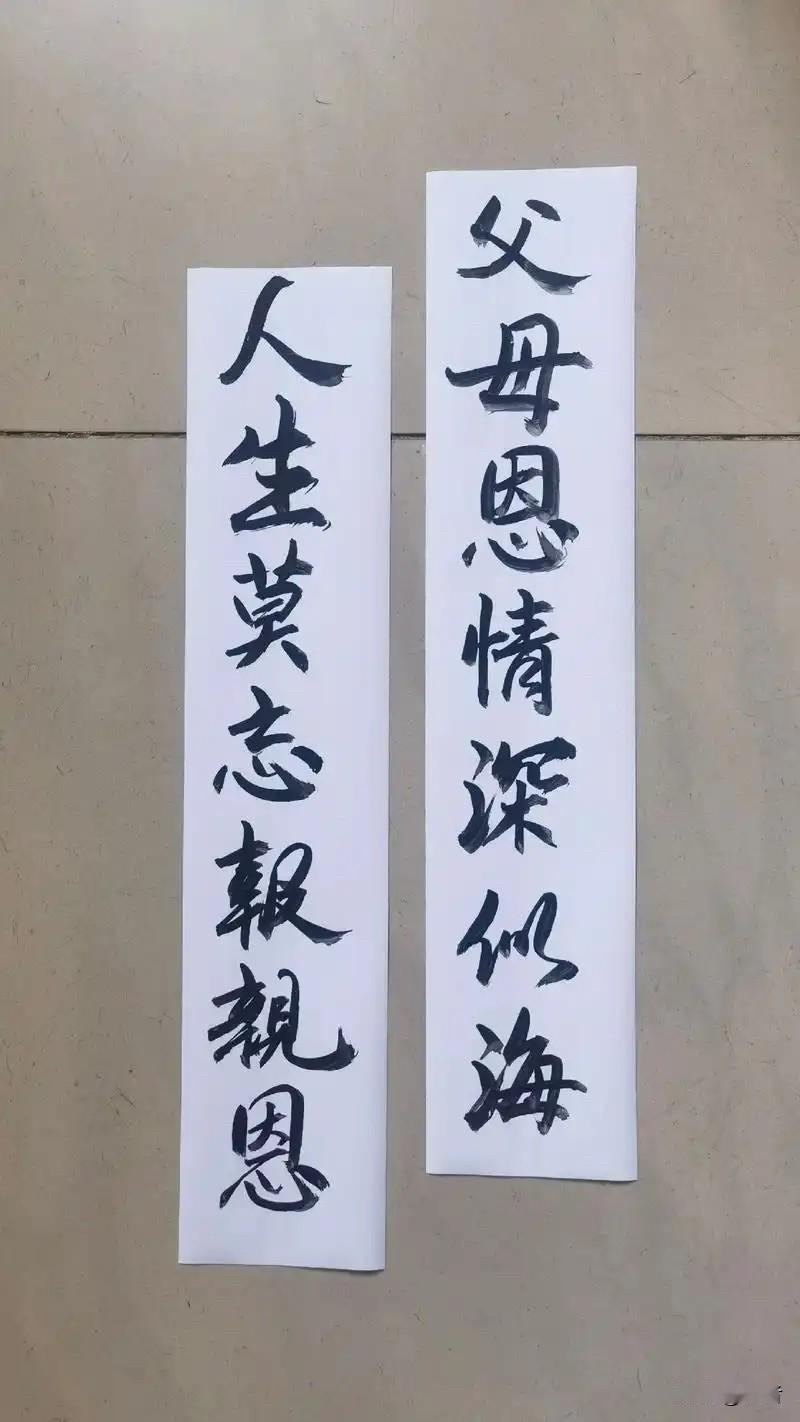 父母恩情深似海
人生莫忘報親恩